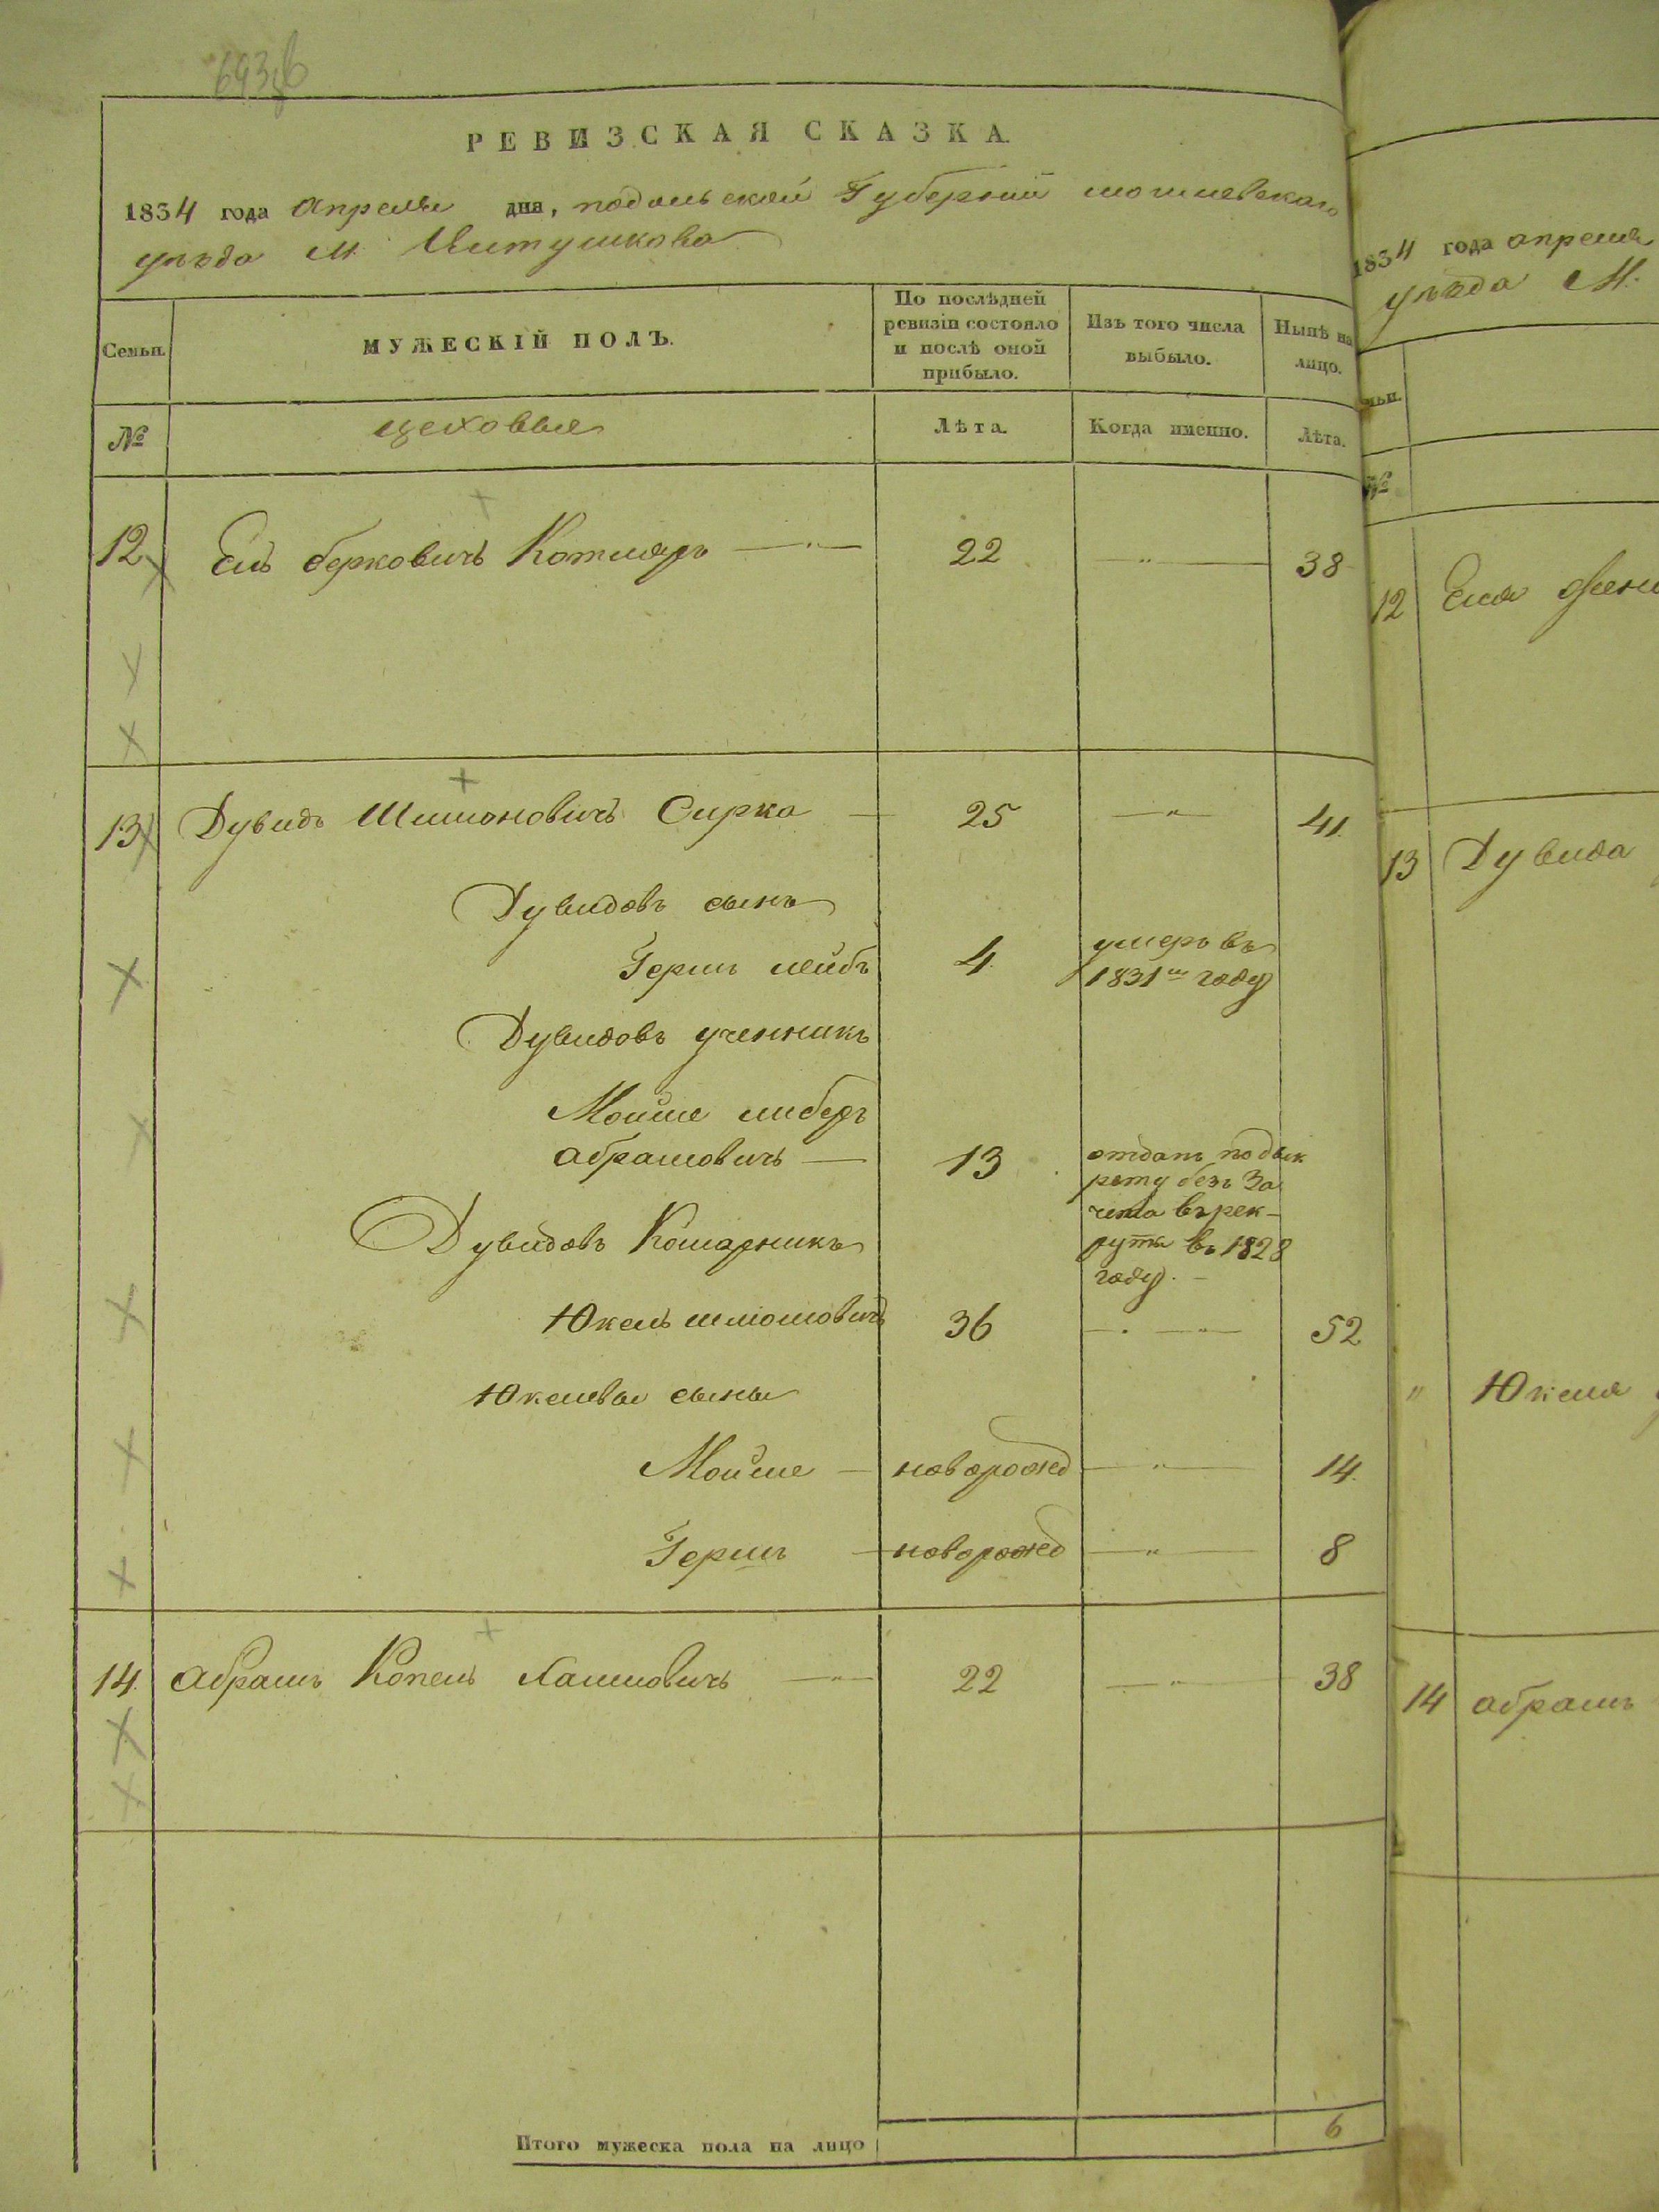 РЕВИЗСКАЯ СКАЗКА.
1834 года апреля дня, подольской Губернии могилевскаго
уезда М.
Семьи.
МУЖЕСКІЙ ПОЛЪ.
По послѣдней
ревизіи состояло
и послѣ оной
прибыло.
Изъ того числа
выбыло.
Нынѣ на
лицо.
№
цеховые
Лѣта.
Когда именно.
Лѣта.
12 Ель беркович Котляръ — 22 — 38
13 Дувидъ Шимоновичъ Сирка — 25 — 41.
Дувидовъ сынъ
Герш лейбъ 4 умеръ въ
1831м году
Дувидовъ ученникъ
Мойше либеръ
абрамовичъ — 13 отданъ по дык
рету безъ За
чета въ рек-
руты въ 1828
году. -
Дувидовъ Комарникъ
Юкель шлиомовичъ 36 — 52
Юкелевы сыны
Мойше — новорожд — 14.
Гершъ — новорожд — 8
14. абрамъ Копель Хаимовичъ — 22 — 38
Итого мужеска пола на лицо 6
1834 года апреля
уезда М.
№
12 Еля жена
13 Дувида
" Юкеля
14 абрамъ